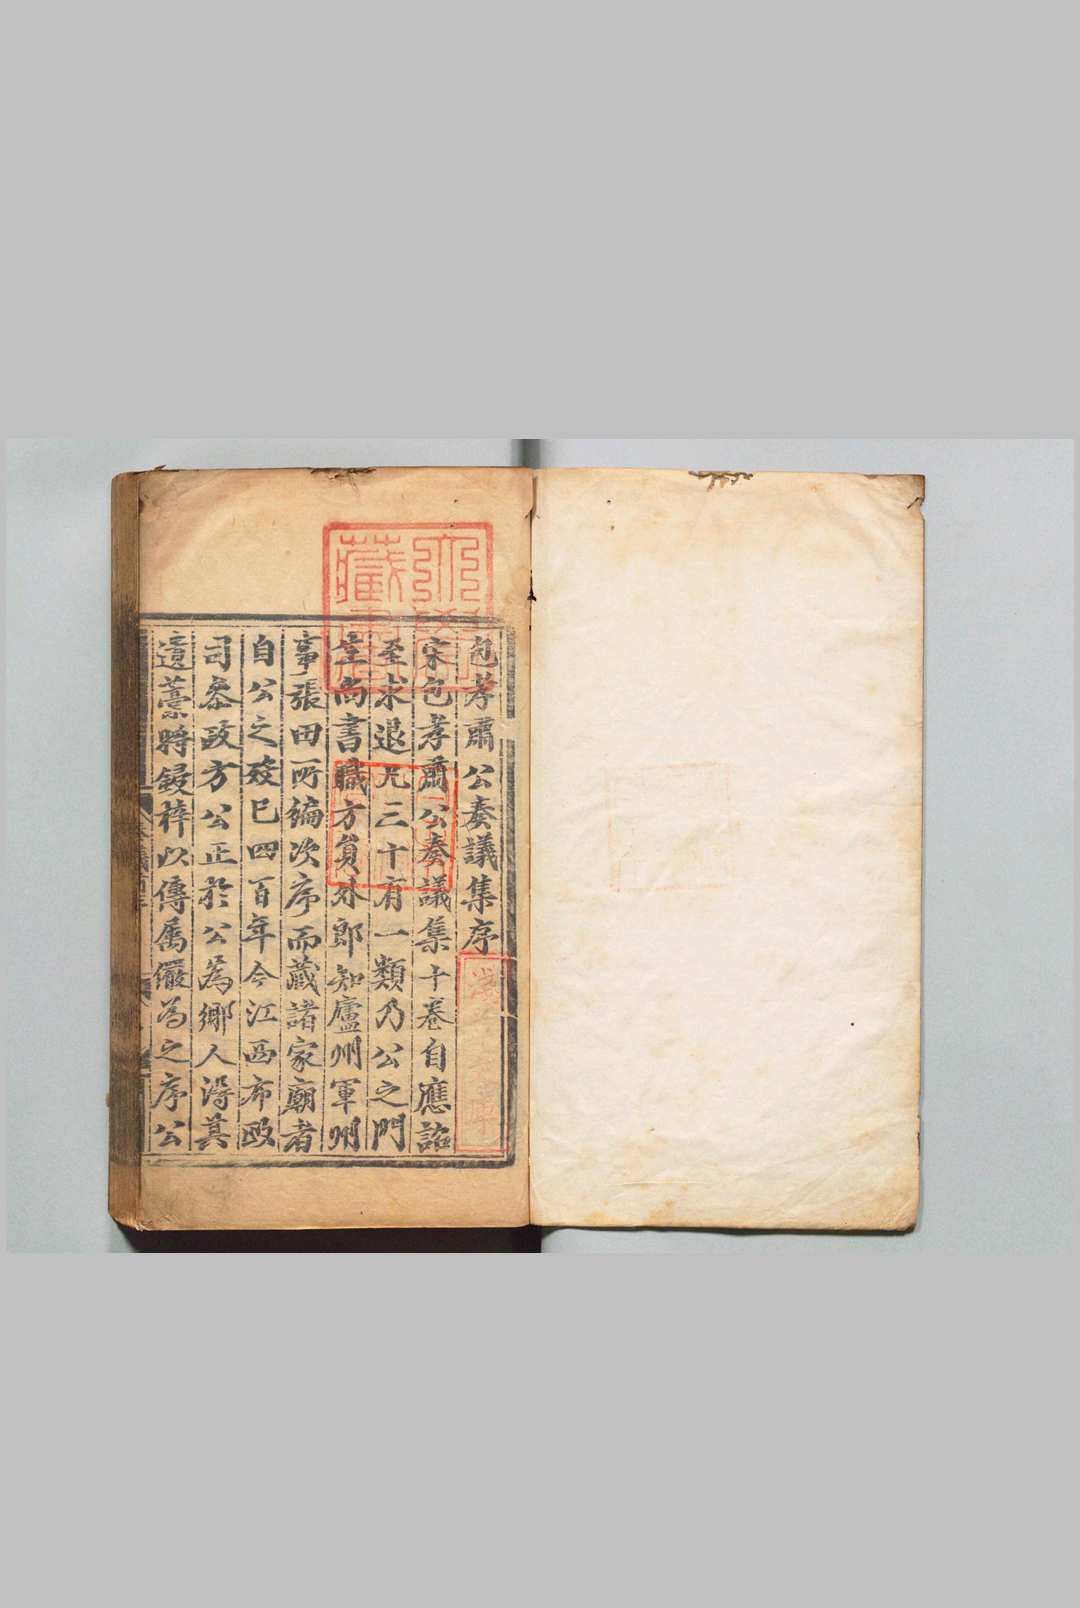 包孝肅公奏議集序
宋包孝肅公奏議集十卷自應詔
至求退凡三十有一類乃公之門
生尚書職方員外郎知廬州軍州
事張田所編次序而藏諸家廟者
自公之歿已四百年今江西布政
司叅政方公正於公為鄉人得其
遺藁將鋟梓以傳属儼為之序公